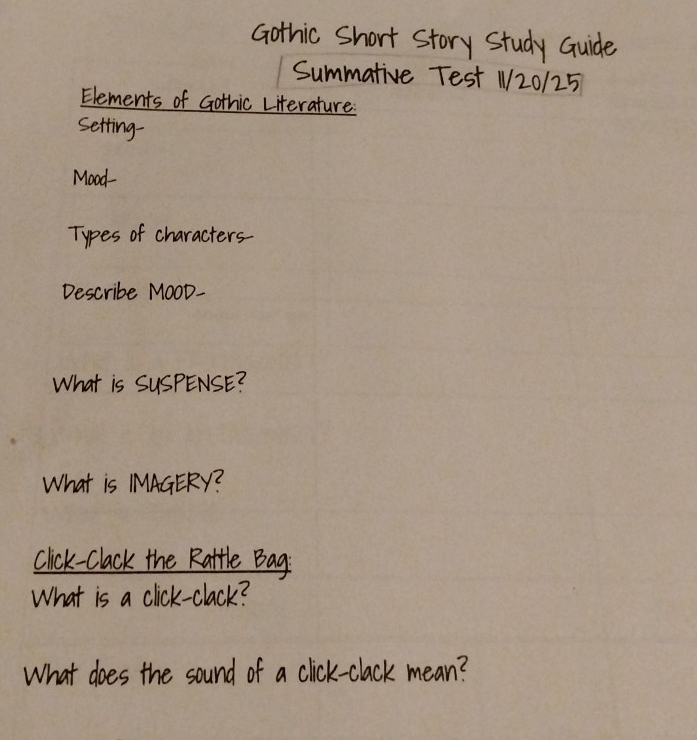 Gothic Short Story Study Guide
Summative Test 11/20/25
Elements of Gothic Literature:
Setting-
Mood-
Types of characters-
Describe MOOD-
What is SUSPENSE?
What is IMAGERY?
Click-Clack the Rattle Bag:
What is a click-clack?
What does the sound of a click-clack mean?